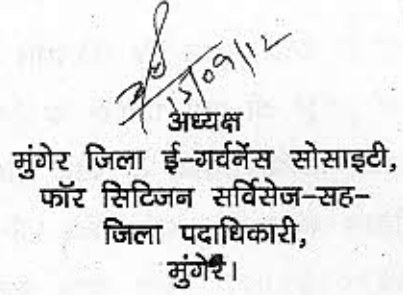 15/09/12
अध्यक्ष
मुंगेर जिला ई-गर्वनेंस सोसाइटी,
फॉर सिटिजन सर्विसेज-सह-
जिला पदाधिकारी,
मुंगेर।